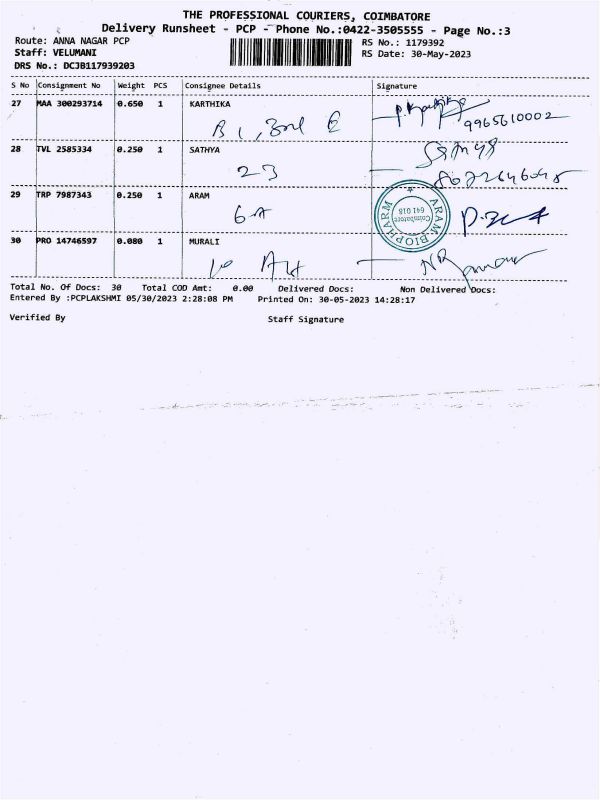 THE PROFESSIONAL COURIERS, COIMBATORE
Delivery Runsheet - PCP - Phone No.:0422-3505555 - Page No.:3
Route: ANNA NAGAR PCP
RS No.: 1179392
Staff: VELUMANI
RS Date: 30-May-2023
DRS No.: DCJB117939203
S No Consignment No Weight PCS Consignee Details Signature
27 MAA 300293714 0.650 1 KARTHIKA
9965610002
28 TVL 2585334 0.250 1 SATHYA
23
29 TRP 7987343 0.250 1 ARAM
6A
ARAM BIOPHARM
Coimbatore
641 018
30 PRO 14746597 0.080 1 MURALI
Total No. Of Docs: 30 Total COD Amt: 0.00 Delivered Docs: Non Delivered Docs:
Entered By :PCPLAKSHMI 05/30/2023 2:28:08 PM Printed On: 30-05-2023 14:28:17
Verified By Staff Signature